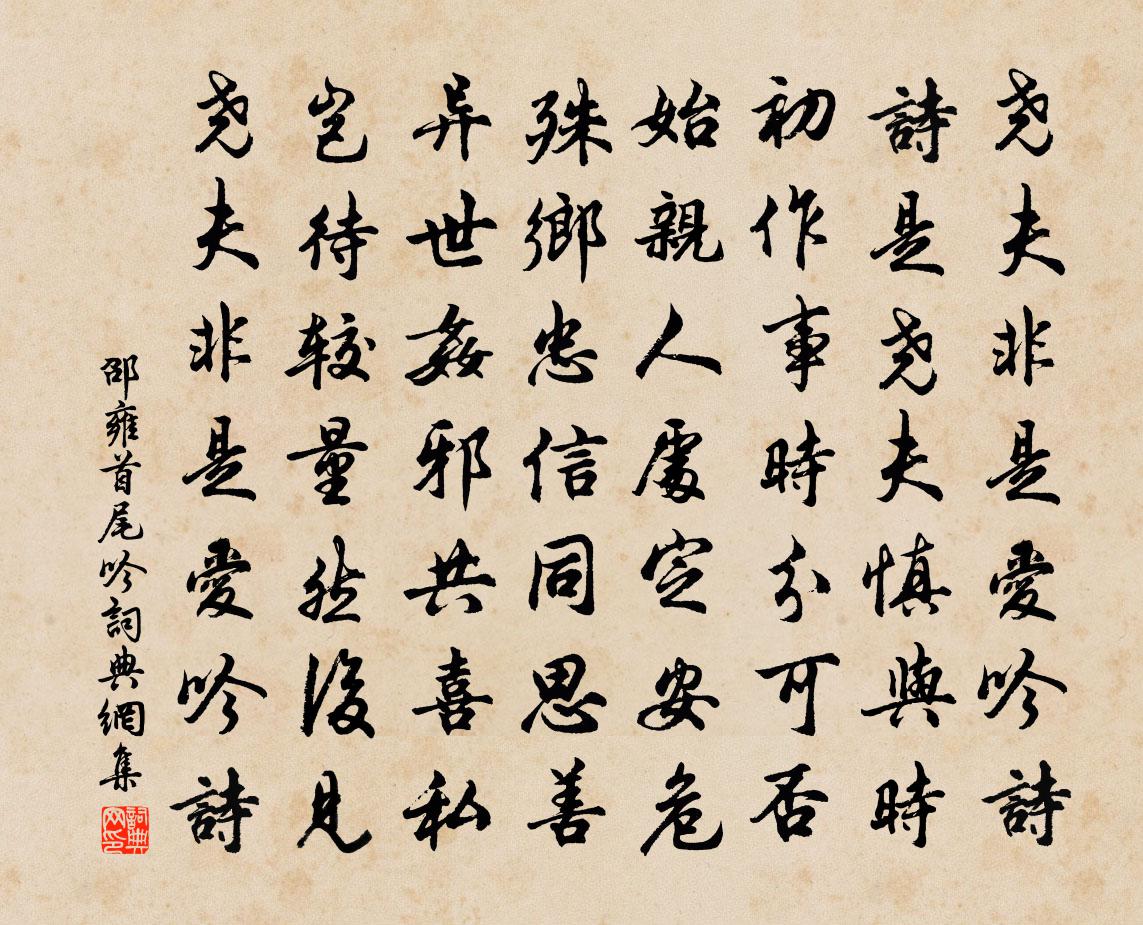 尧夫非是愛吟詩
詩是尧夫慎與時
初作事時分可否
始親人處定安危
殊鄉忠信同思善
异世姦邪共喜私
豈待較量然後見
尧夫非是愛吟詩
邵雍首尾吟詞典網集
詞典网印